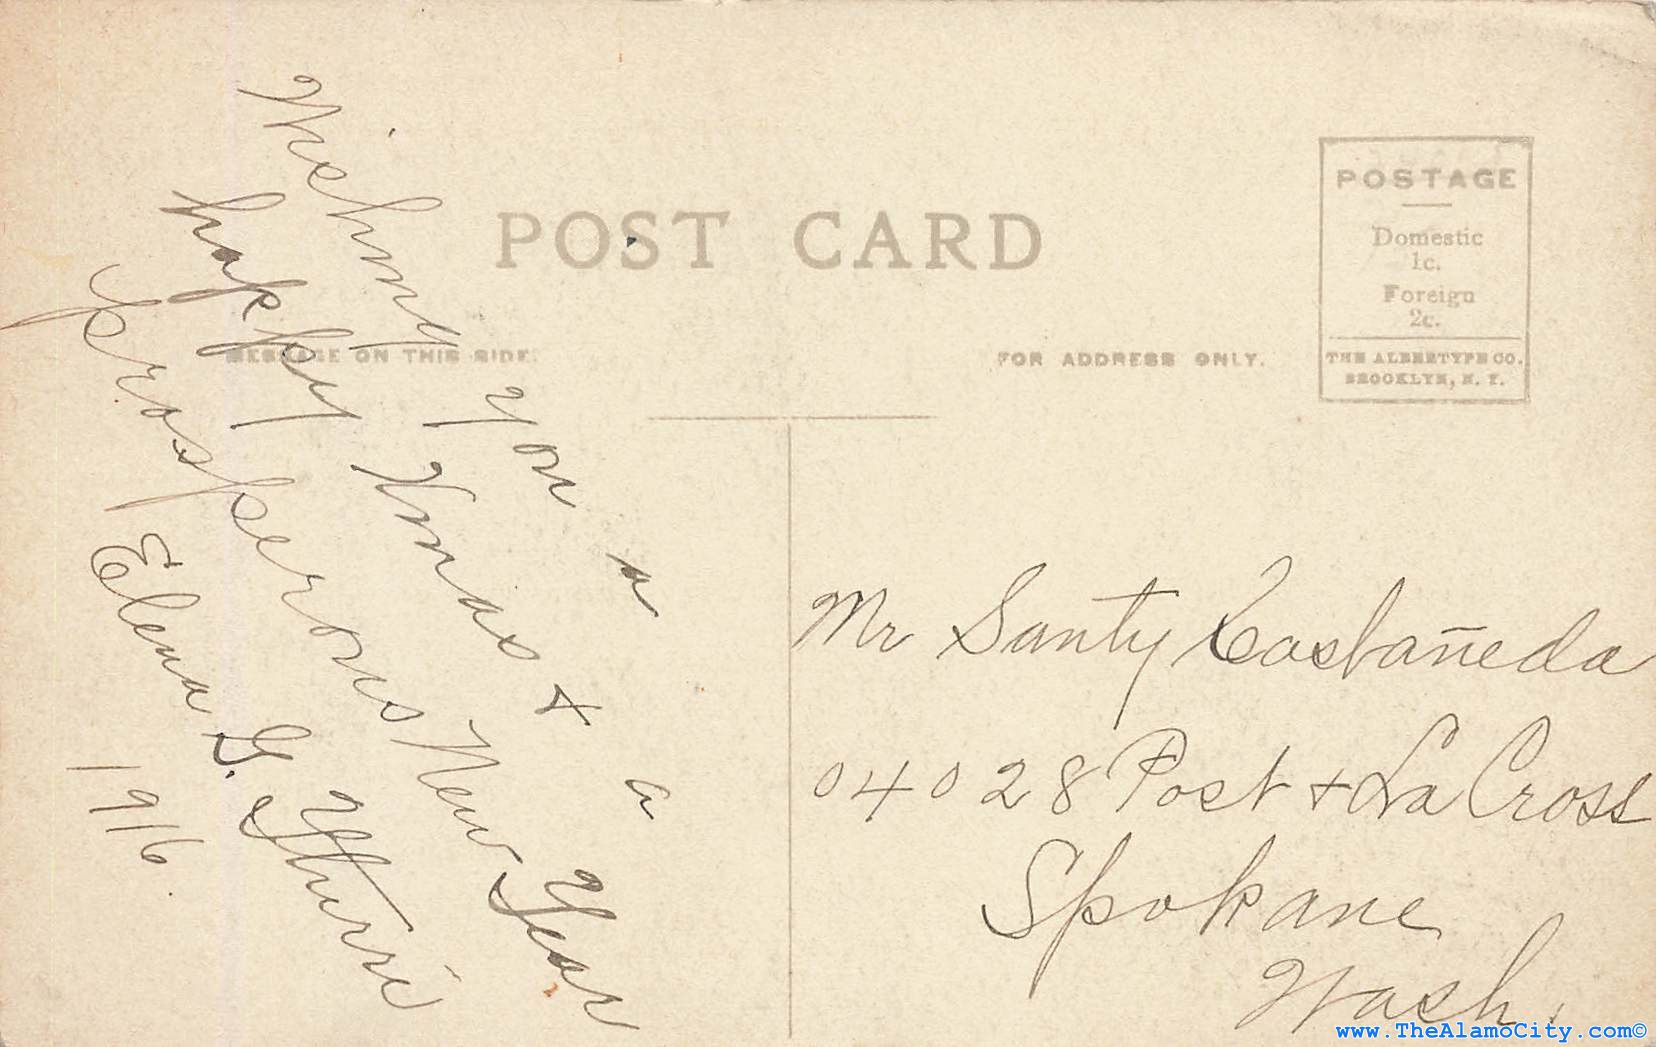 POST CARD
MESSAGE ON THIS SIDE.
FOR ADDRESS ONLY.
POSTAGE
Domestic
1c.
Foreign
2c.
THE ALBERTYPE CO.
BROOKLYN, N. Y.
Wishing you a
happy Xmas + a
prosperous New Year
Elena G. Yturri
1916.
Mr Santy Castañeda
04028 Post + La Cross
Spokane
Wash.
www.TheAlamoCity.com©